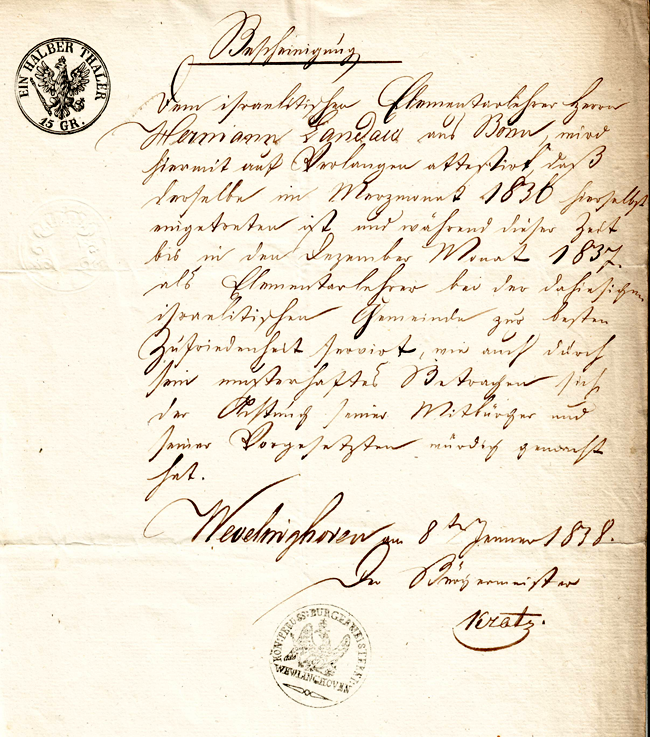 Bescheinigung
EIN HALBER THALER
15 GR.
Dem israelitischen Elementarlehrer Herrn
Hermann Landau aus Bonn, wird
hiermit auf Verlangen attestirt, daß
derselbe im Merzmonat 1836 hierselbst
eingetreten ist und während dieser Zeit
bis in den Dezember Monat 1837.
als Elementarlehrer bei der dahiesigen
israelitischen Gemeinde zur besten
Zufriedenheit servirt, wie auch durch
sein musterhaftes Betragen sich
der Achtung seiner Mitbürger und
seiner Vorgesetzten würdig gemacht
hat.
Wevelinghoven am 8ten Jenner 1838.
Der Bürgermeister
Kratz.
KÖN. PREUSS. BURGERMEISTEREY
WEVLINGHOVEN